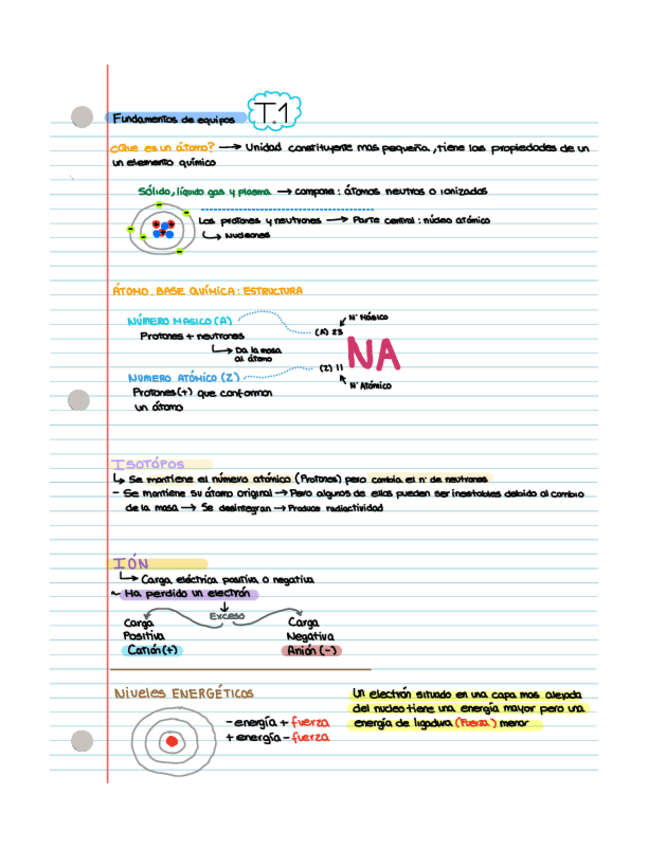 Fundamentos de equipos T.1
¿Que es un átomo? → Unidad constituyente mas pequeña, tiene las propiedades de un
un elemento químico
Sólido, líquido gas y plasma → compone: átomos neutros o ionizados
Los protones y neutrones → Parte central: núcleo atómico
↳ Nucleones
ÁTOMO. BASE QUÍMICA: ESTRUCTURA
NÚMERO MASICO (A)
Protones + neutrones
↳ Da la masa
al átomo
NUMERO ATÓMICO (Z)
Protones (+) que conforman
un átomo
Nº Másico
(A) 23
NA
(Z) 11
Nº Atómico
ISOTÓPOS
↳ Se mantiene el número atómico (Protones) pero cambia el nº de neutrones
- Se mantiene su átomo original → Pero algunos de ellos pueden ser inestables debido al cambio
de la masa → Se desintegran → Produce radiactividad
IÓN
↳ Carga eléctrica positiva o negativa
~ Ha perdido un electrón
↓
Exceso
Carga
Positiva
Catión (+)
Carga
Negativa
Anión (-)
Niveles ENERGÉTICOS
- energía + fuerza
+ energía - fuerza
Un electrón situado en una capa mas alejada
del nucleo tiene una energía mayor pero una
energía de ligadura (Fuerza) menor